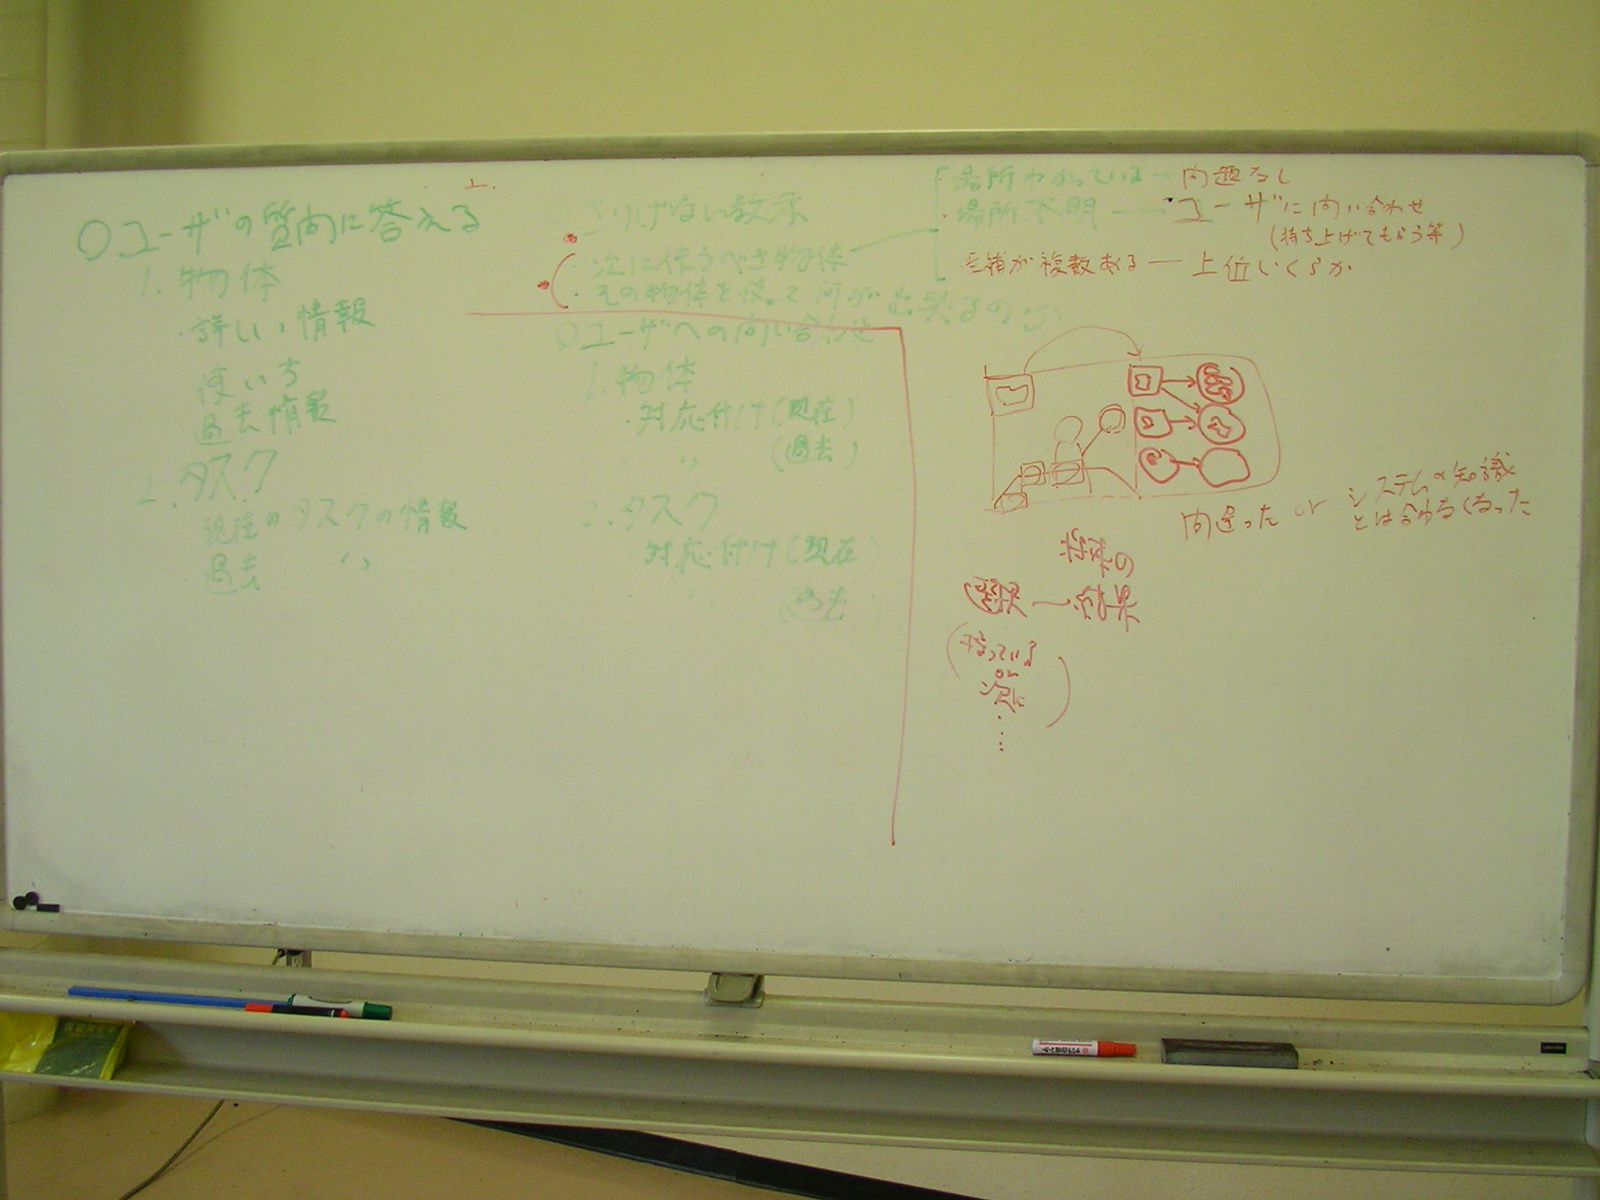 ○ユーザの質問に答える
1. 物体
・詳しい情報
使い方
過去情報
2. タスク
現在のタスクの情報
過去 〃
○さりげない教示
・次に使うべき物体
・その物体を使って何が出来るのか
・場所わかっている ― 問題なし
・場所不明 ― ユーザに問い合わせ
(持ち上げてもらう等)
候補が複数ある ― 上位いくらか
○ユーザへの問い合わせ
1. 物体
・対応付け(現在)
〃 (過去)
2. タスク
対応付け(現在
(過去)
間違った or システムの知識
とは合わなくなった
将来の
選択 ― 効果
(持っている
or
次に